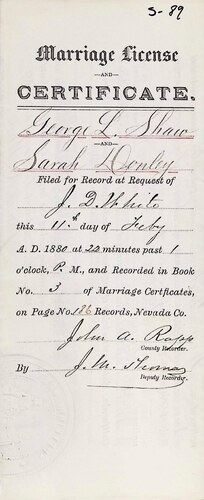 S-89
Marriage License
—AND—
CERTIFICATE.
George L. Shaw
—AND—
Sarah Donley
Filed for Record at Request of
J. D. White
this 11th day of Feby
A. D. 1880 at 22 minutes past 1
o'clock, P. M., and Recorded in Book
No. 3 of Marriage Certficates,
on Page No. 186 Records, Nevada Co.
John A. Rapp
County Recorder.
By J. M. Thomas
Deputy Recorder.